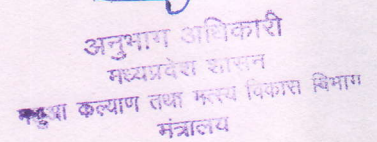 अनुभाग अधिकारी
मध्यप्रदेश शासन
मछुआ कल्याण तथा मत्स्य विकास विभाग
मंत्रालय